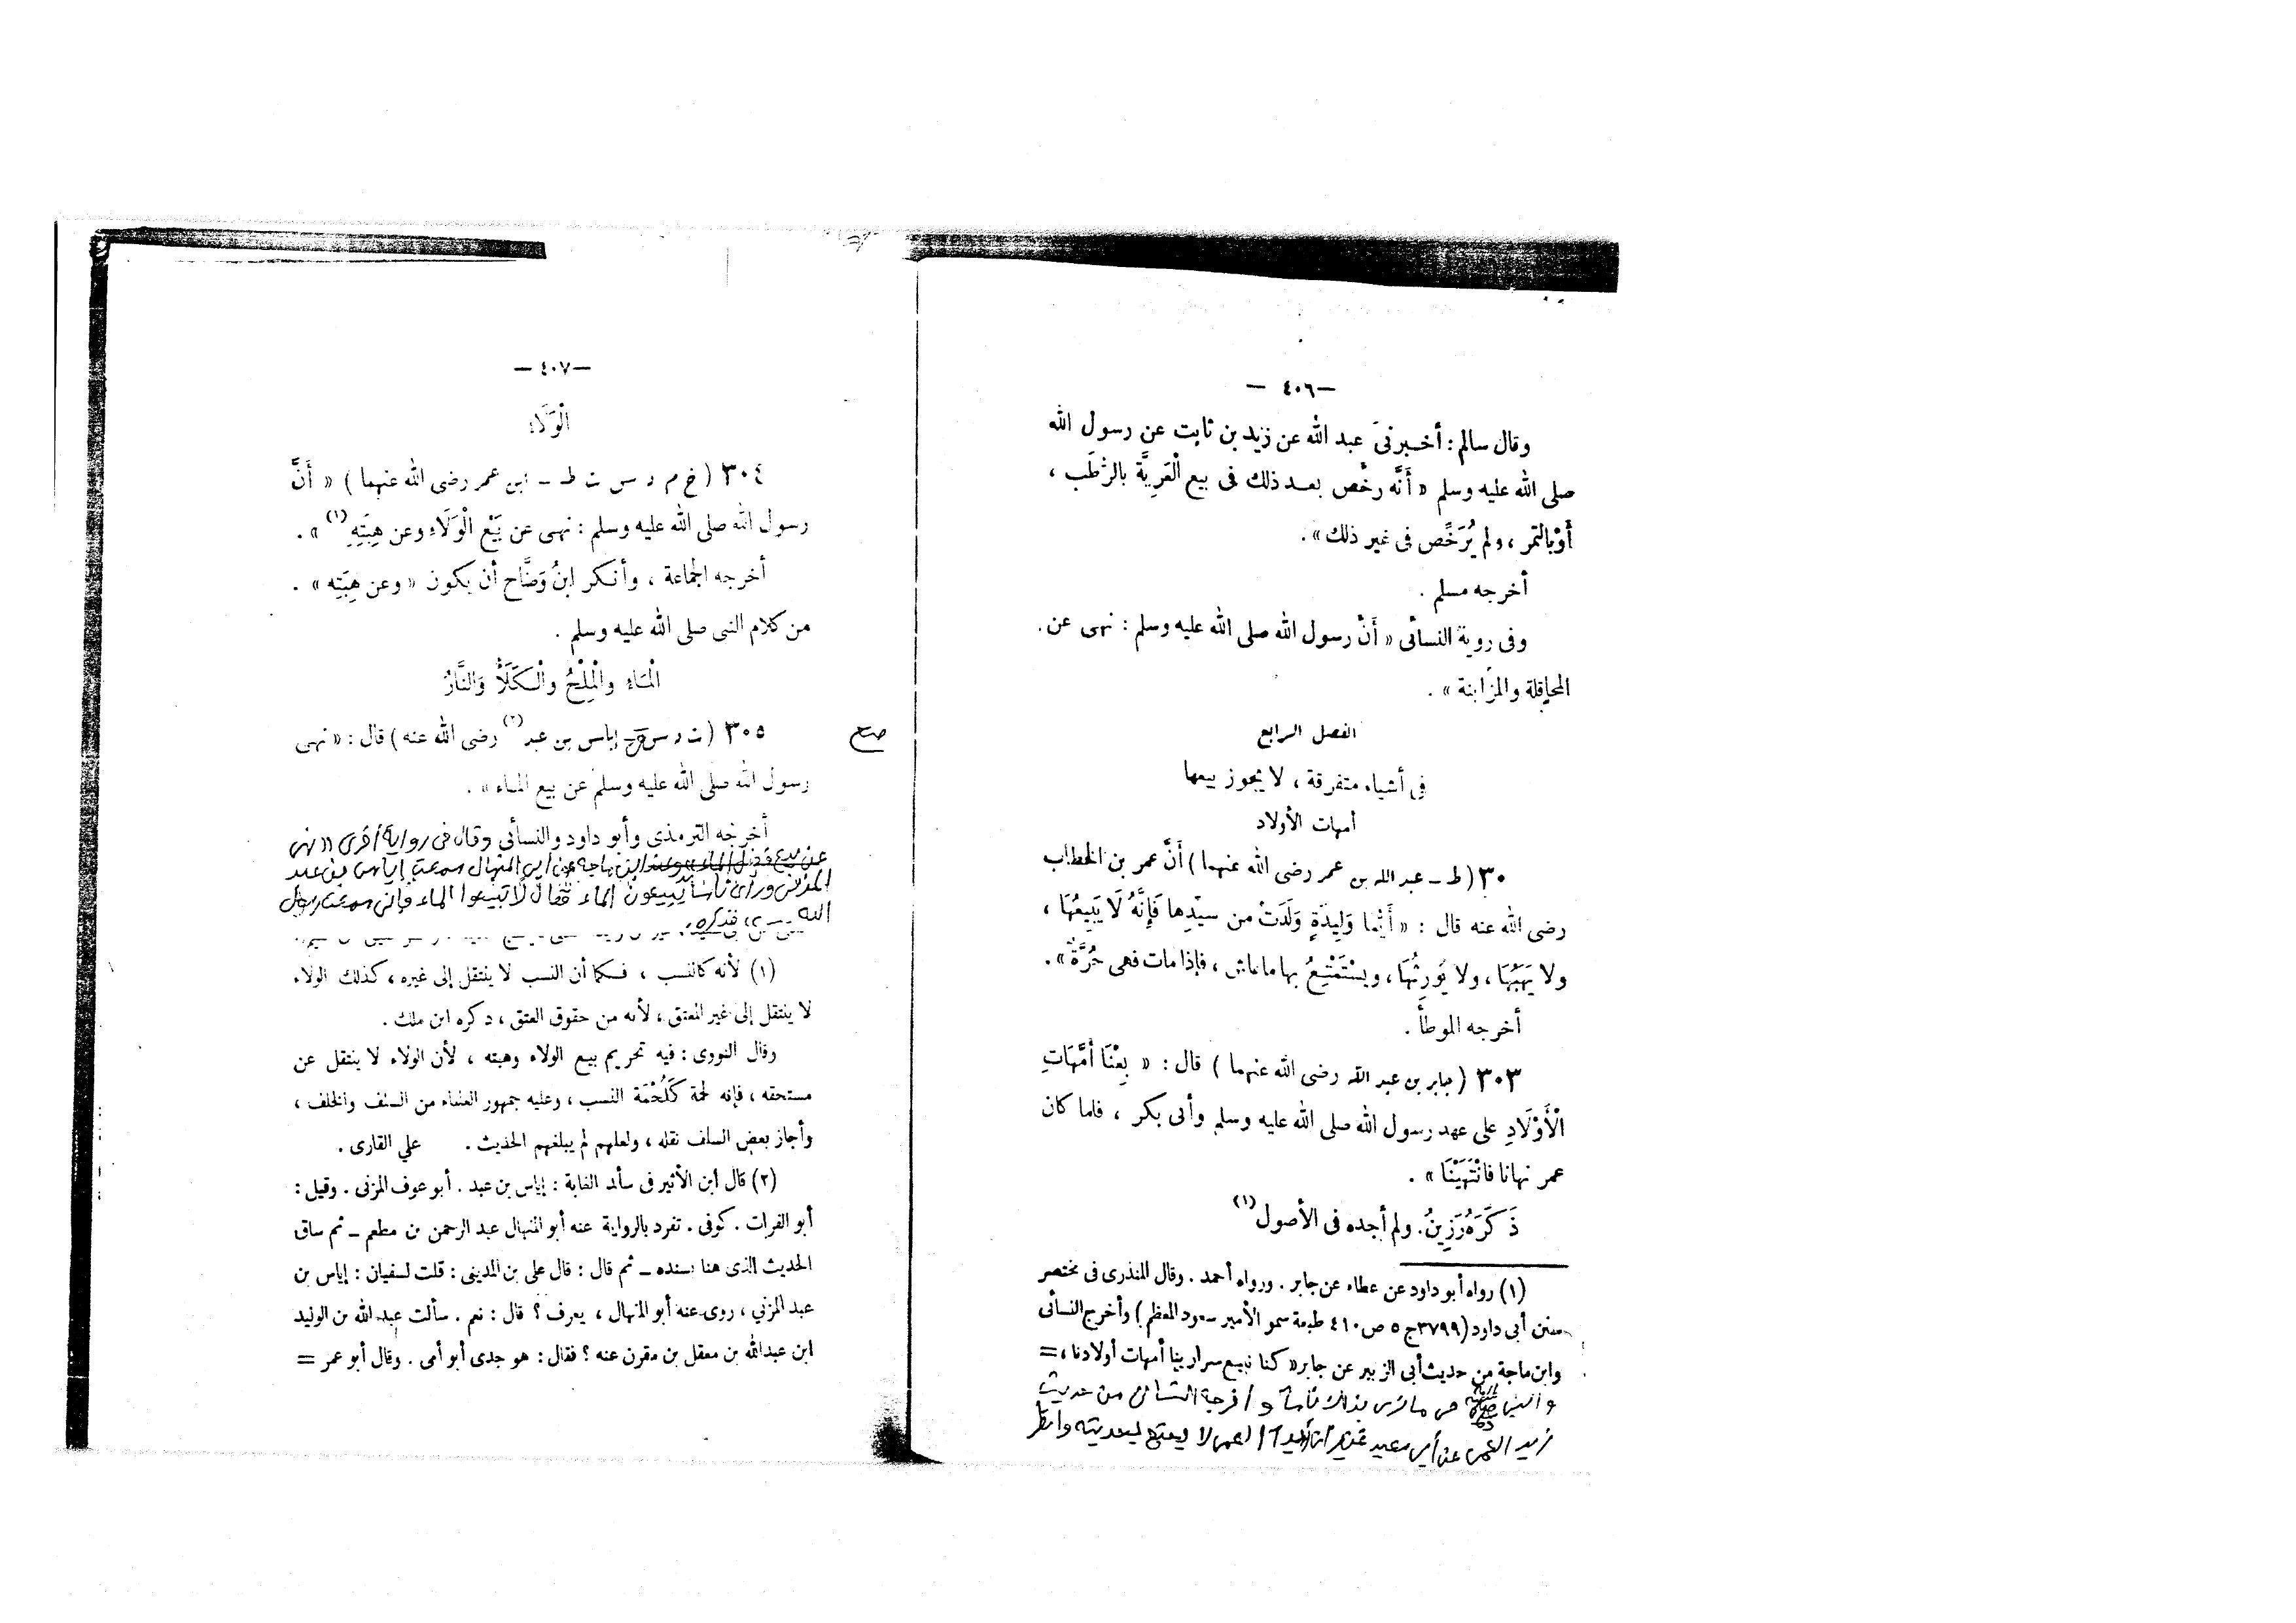 — ٤٠٦ —
وقال سالم : أخبرنى عبد الله عن زيد بن ثابت عن رسول الله
صلى الله عليه وسلم « أَنَّه رخَّص بعد ذلك فى بيع الْعَرِيَّة بالرُّطَب ،
أَوْ بالتمر ، ولم يُرَخِّص فى غير ذلك » .
أخرجه مسلم .
وفى روية النسائى « أَنَّ رسول الله صلى الله عليه وسلم : نهى عن
المحاقلة والمزابنة » .
الفصل الرابع
فى أشياء متفرقة ، لا يجوز بيعها
أمهات الأولاد
٣٠ ( ط – عبد الله بن عمر رضى الله عنهما ) أَنَّ عمر بن الخطاب
رضى الله عنه قال : « أَيُّما وَلِيدَةٍ وَلَدَتْ من سيِّدِها فَإِنَّهُ لَا يَبِيعُهَا ،
ولا يَهَبُهَا ، ولا يُوَرِثُهَا ، ويسْتَمْتِعُ بها ما عاش ، فإذا مات فهى حُرَّةٌ » .
أخرجه الموطأ .
٣٠٣ ( جابر بن عبد الله رضى الله عنهما ) قال : « بِعْنَا أُمَّهَاتِ
الْأَوْلَادِ على عهد رسول الله صلى الله عليه وسلم وأبى بكر ، فلما كان
عمر نهانا فانْتَهَيْنَا » .
ذَكَرَهُ رَزِينُ . ولم أجده فى الأصول (١)
(١) رواه أبو داود عن عطاء عن جابر . ورواه أحمد . وقال المنذرى فى مختصر
سنن أبى داود ( ٣٧٩٩ ج ٥ ص ٤١٠ طبعة سمو الأمير سعود المعظم ) وأخرج النسائى
وابن ماجة من حديث أبى الزبير عن جابر « كنا نبيع سرارينا أمهات أولادنا ، =
والنبي حي ما نرى بذلك بأسا وأخرجه النسائى من حديث
زيد العمى عن أبي سعيد لا يحتج بحديثه وانظر
— ٤٠٧ —
الْوَلَاء
٣٠٤ ( خ م د س ت ط – ابن عمر رضى الله عنهما ) « أَنَّ
رسول الله صلى الله عليه وسلم : نهى عن بَيْع الْوَلَاءِ وعن هِبَتِهِ (١) » .
أخرجه الجماعة ، وأنكر ابنُ وَضَّاح أن يكون « وعن هِبَتِه » .
من كلام النبى صلى الله عليه وسلم .
الْمَاء والْمِلْحُ والْكَلَأُ وَالنَّارُ
٣٠٥ ( ت د س – إياس بن عبد (٢) رضى الله عنه ) قال : « نهى
صح
رسول الله صلى الله عليه وسلم عن بيع الماء » .
أخرجه الترمذى وأبو داود والنسائى وقال فى رواية أخرى « نهى
عن بيع فضل الماء » وعند ابن ماجه عن أبي المنهال سمعت إياس بن عبد
المزنى ورأى ناسا يبيعون الماء فقال لا تبيعوا الماء فإنى سمعت رسول
الله فذكره
(١) لأنه كالنسب ، فكما أن النسب لا ينتقل إلى غيره ، كذلك الولاء
لا ينتقل إلى غير المعتق ، لأنه من حقوق العتق ، ذكره ابن ملك .
وقال النووى : فيه تحريم بيع الولاء وهبته ، لأن الولاء لا ينتقل عن
مستحقه ، فإنه لحمة كَلُحْمَة النسب ، وعليه جمهور العلماء من السلف والخلف ،
وأجاز بعض السلف نقله ، ولعلهم لم يبلغهم الحديث . علي القارى .
(٢) قال ابن الأثير فى سأند الغابة : إياس بن عبد . أبو عوف المزنى . وقيل :
أبو الفرات . كوفى . تفرد بالرواية عنه أبو المنهال عبد الرحمن بن مطعم – ثم ساق
الحديث الذى هنا بسنده – ثم قال : قال على بن المدينى : قلت لسفيان : إياس بن
عبد المزني ، روى عنه أبو المنهال ، يعرف ؟ قال : نعم . سألت عبد الله بن الوليد
ابن عبدالله بن معقل بن مقرن عنه ؟ فقال : هو جدى أبو أمى . وقال أبو عمر =